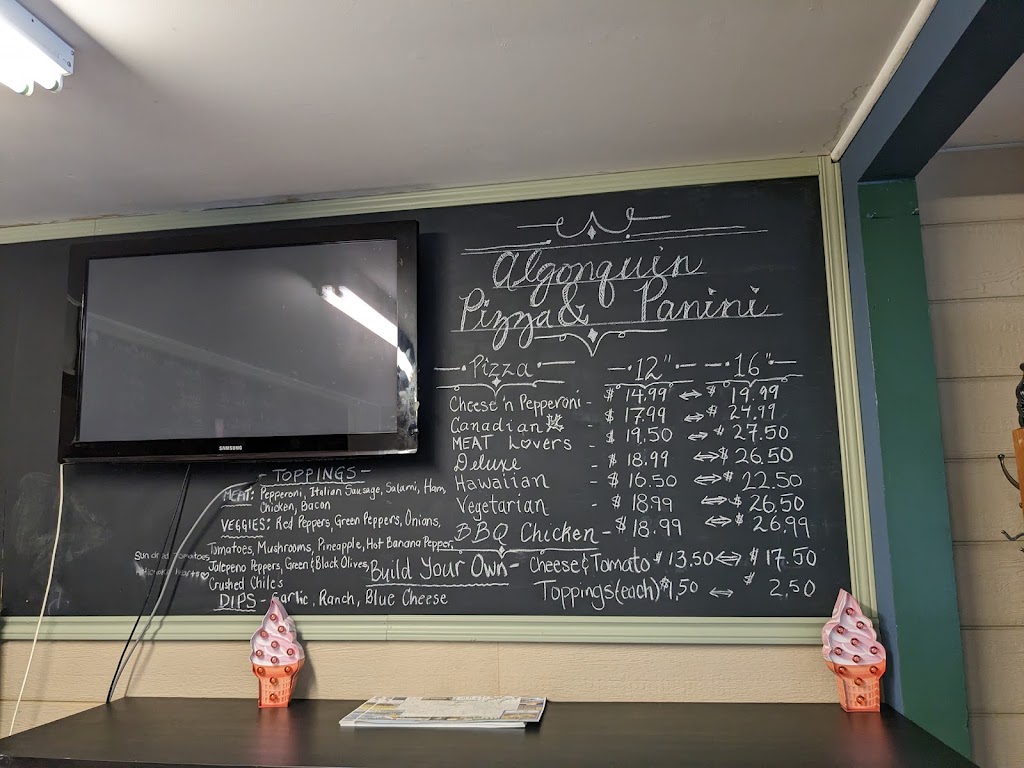 Algonquin
Pizza & Panini
Pizza 12" 16"
Cheese 'n Pepperoni - $ 14.99 ⇔ $ 19.99
Canadian - $ 17.99 ⇔ $ 24.99
MEAT Lovers - $ 19.50 ⇔ $ 27.50
Deluxe - $ 18.99 ⇔ $ 26.50
Hawaiian - $ 16.50 ⇔ $ 22.50
Vegetarian - $ 18.99 ⇔ $ 26.50
BBQ Chicken - $ 18.99 ⇔ $ 26.99
Build Your Own - Cheese & Tomato $ 13.50 ⇔ $ 17.50
Toppings (each) $1.50 ⇔ $ 2.50
- TOPPINGS -
MEAT: Pepperoni, Italian Sausage, Salami, Ham,
Chicken, Bacon
VEGGIES: Red Peppers, Green Peppers, Onions,
Tomatoes, Mushrooms, Pineapple, Hot Banana Pepper,
Jalepeno Peppers, Green & Black Olives,
Crushed Chiles
Sundried Tomatoes
Hearts
DIPS - Garlic, Ranch, Blue Cheese
SAMSUNG